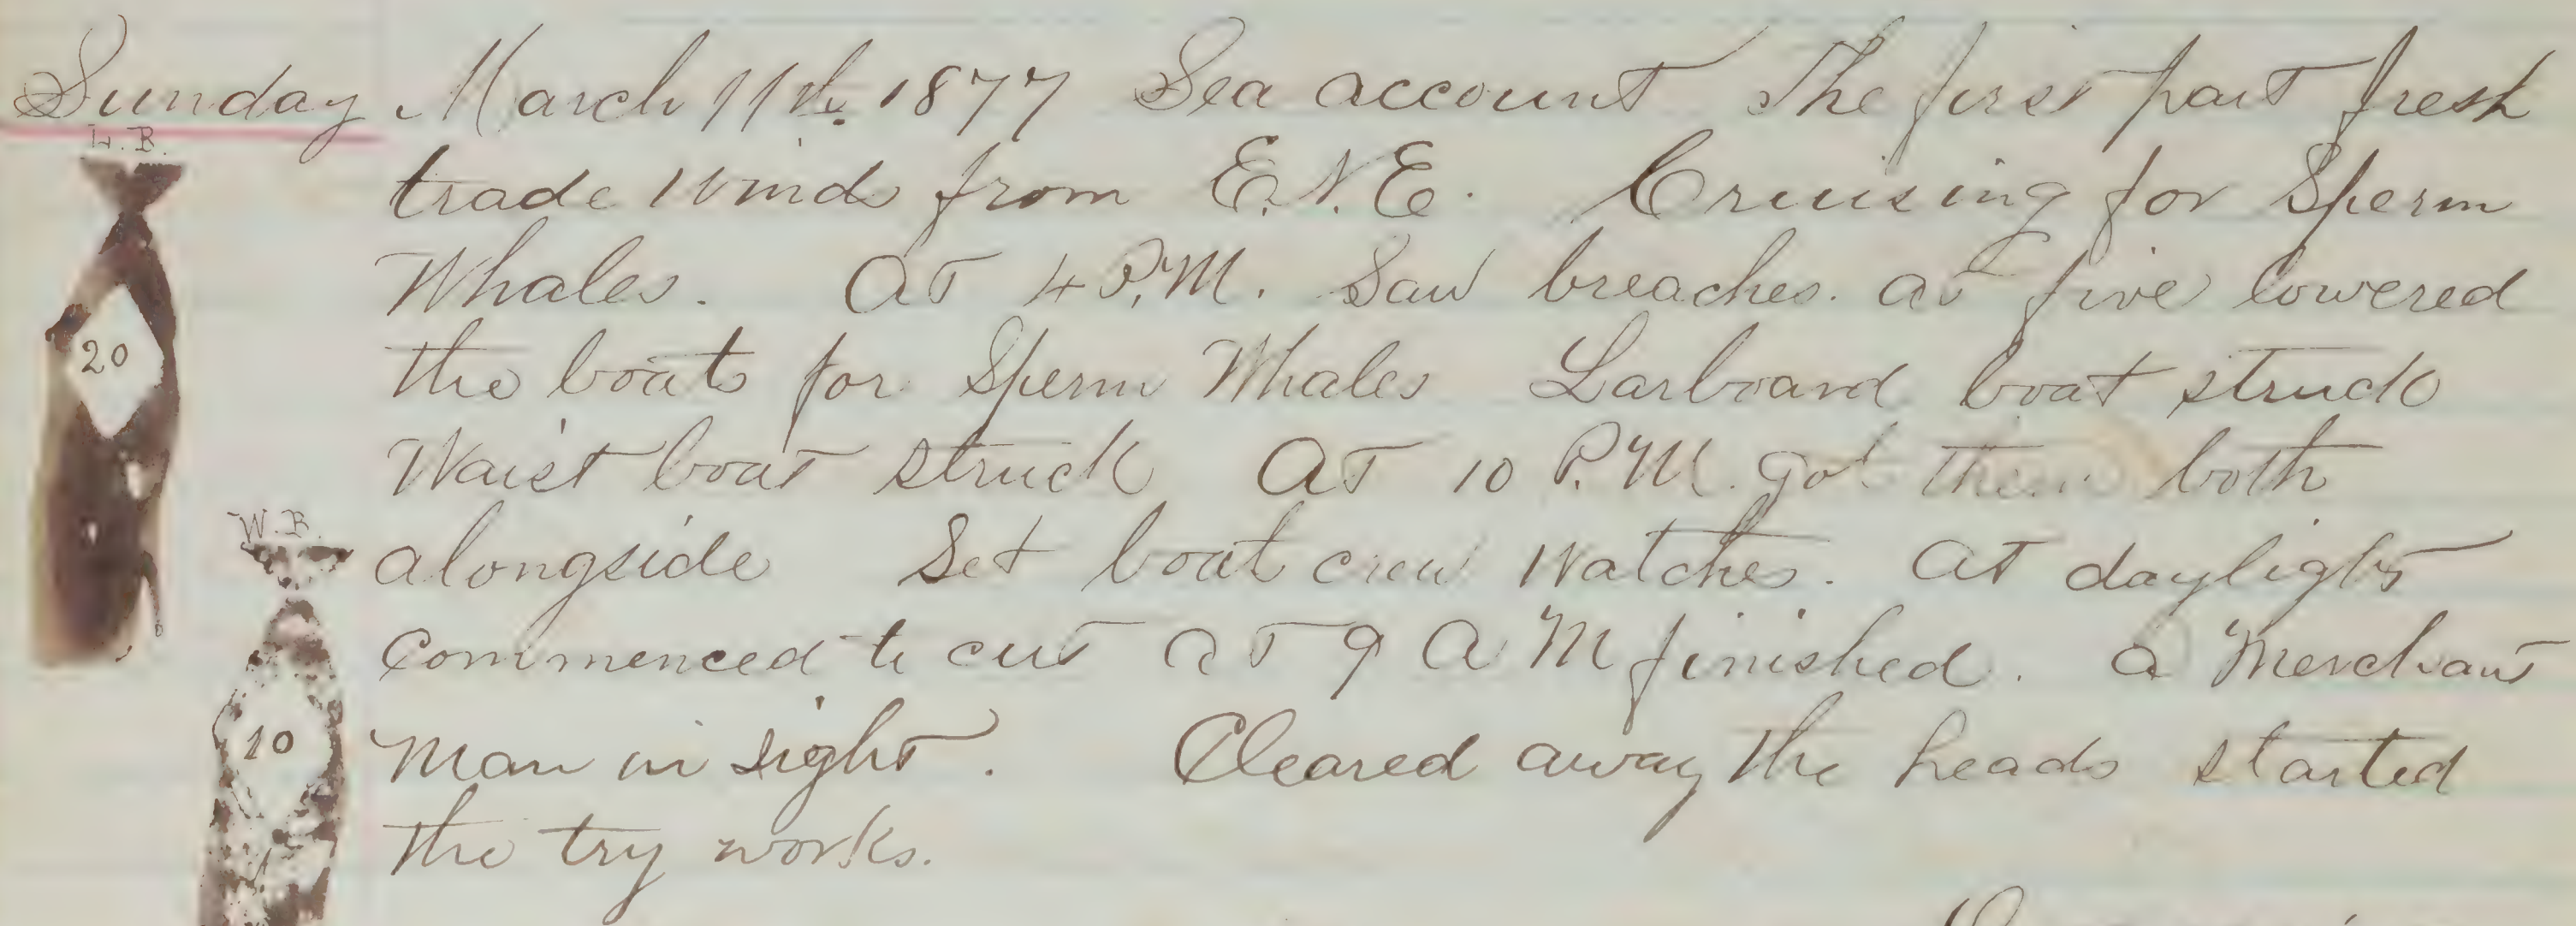 Sunday March 11th 1877 Sea account The first part fresh
L.B.
trade winds from E.N.E. Cruising for Sperm
Whales. At 4 P.M. Saw breaches. at five lowered
20
the boats for Sperm Whales Larboard boat struck
Waist boat struck At 10 P.M. got them both
W.B.
alongside Set boat crew watches. At dayligts
Commenced to cut at 9 AM finished. a Merchant
10
man in sight. Cleared away the heads started
the try works.